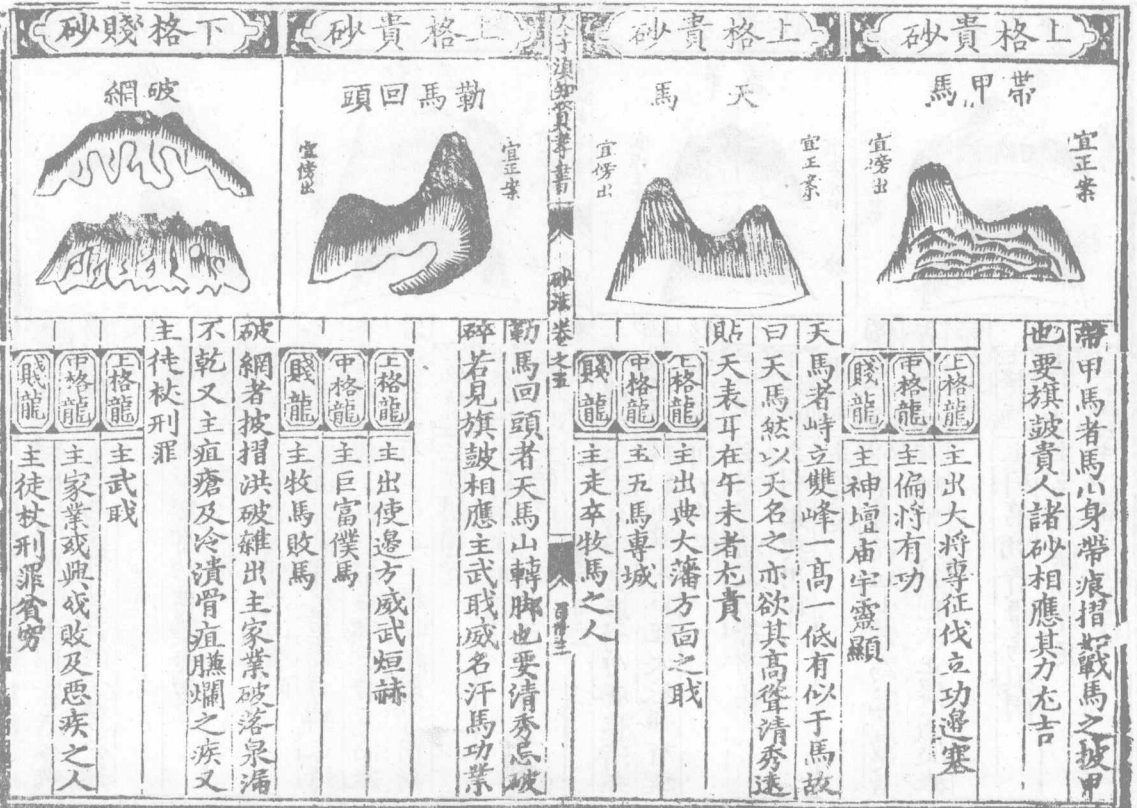 上格貴砂
帶甲馬
宜正案
宜傍出
帶甲馬者馬山身帶痕摺如戰馬之披甲
也要旗皷貴人諸砂相應其力尤吉
上格龍 主出大將專征伐立功邊塞
中格龍 主偏將有功
賤龍 主神壇庙宇靈顯
上格貴砂
天馬
宜正案
宜傍出
天馬者峙立雙峰一高一低有似于馬故
曰天馬然以天名之亦欲其高聳清秀遠
貼天表耳在午未者尤貴
上格龍 主出典大藩方面之戢
中格龍 主五馬專城
賤龍 主走卒牧馬之人
人子須知資孝書
砂法卷之五
上格貴砂
勒馬回頭
宜正案
宜傍出
勒馬回頭者天馬山轉脚也要清秀忌破
碎若見旗皷相應主武戢威名汗馬功業
上格龍 主出使邊方威武烜赫
中格龍 主巨富僕馬
賤龍 主牧馬敗馬
下格賤砂
破網
破網者披摺洪破雜出主家業破落泉漏
不乾又主疽瘡及冷潰骨疽臁爛之疾又
主徒杖刑罪
上格龍 主武戢
中格龍 主家業或興或敗及惡疾之人
賤龍 主徒杖刑罪貧窮